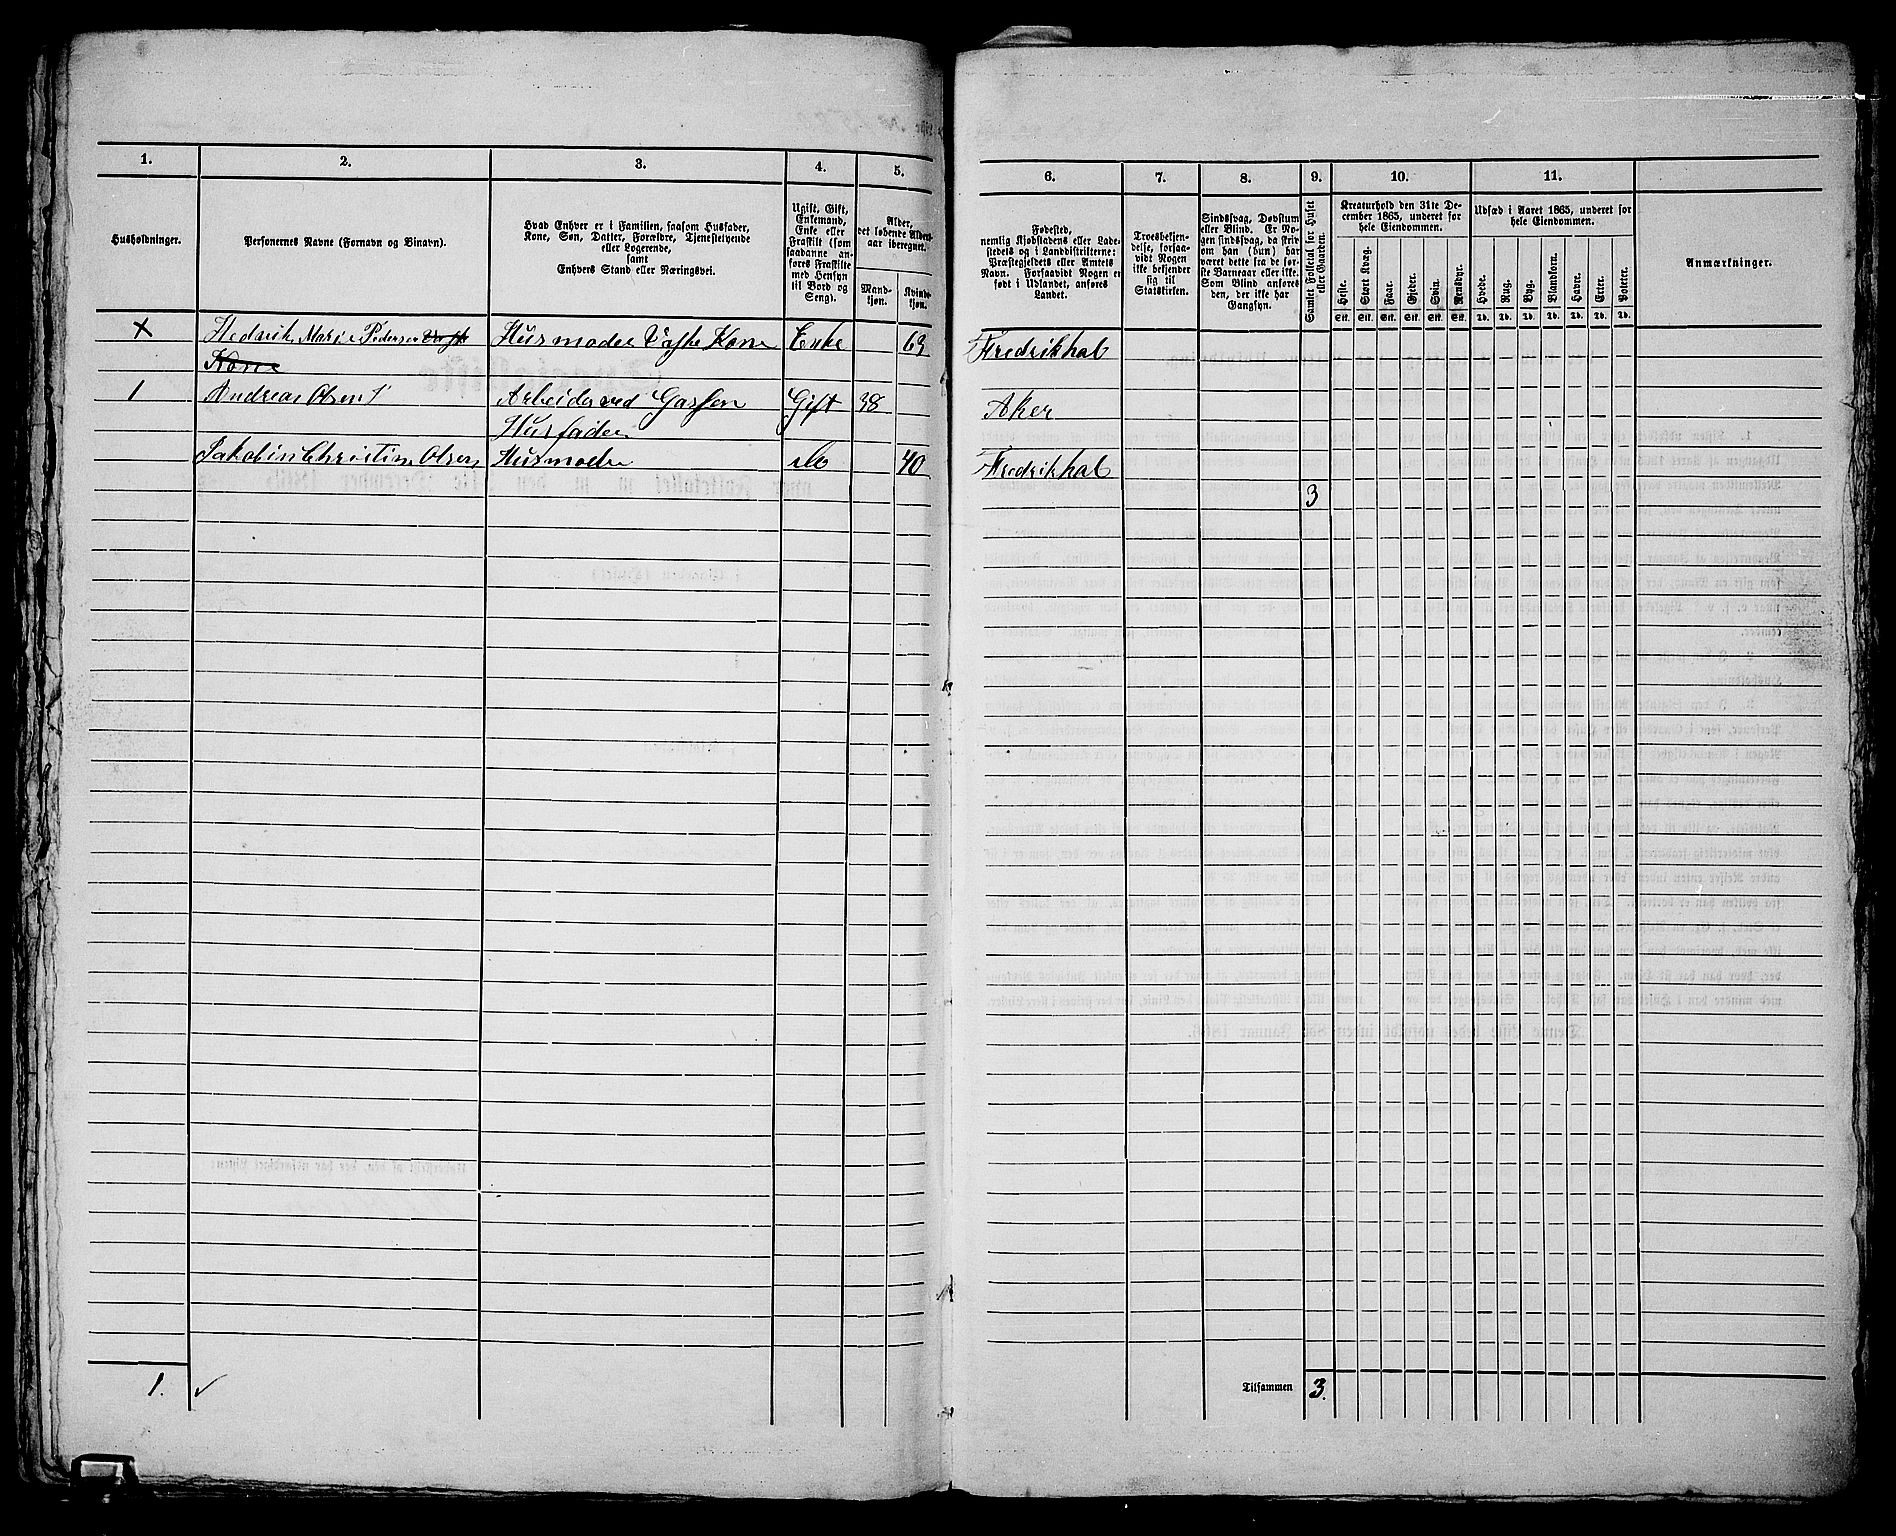 1.
2.
3.
4.
5.
6.
7.
8.
9.
10.
11.
Husholdninger.
Personernes Navne (Fornavn og Binavn).
Hvad Enhver er i Familien, saasom Husfader,
Kone, Søn, Datter, Forældre, Tjenestetyende
eller Logerende,
samt
Enhvers Stand eller Næringsvei.
Ugift, Gift,
Enkemand,
Enke eller
Fraskilt (som
saadanne an-
føres Fraskilte
med Hensyn
til Bord og
Seng).
Alder,
det løbende Alders-
aar iberegnet.
Mand-
kjøn.
Kvinde-
kjøn.
Fødested,
nemlig Kjøbstadens eller Lade-
stedets og i Landdistrikterne:
Præstegjeldets eller Amtets
Navn. Forsaavidt Nogen er
født i Udlandet, anføres
Landet.
Troesbekjen-
delse, forsaa-
vidt Nogen
ikke bekjender
sig til
Statskirken.
Sindssvag, Døvstum
eller Blind. Er No-
gen sindssvag, da skriv
om han (hun) har
været dette fra de før-
ste Barneaar eller ikke.
Som Blind anføres
den, der ikke har
Gangsyn.
Samlet Folketal for Huset
eller Gaarden.
Kreaturhold den 31te De-
cember 1865, underet for
hele Eiendommen.
Heste.
Stort Kvæg.
Faar.
Gjeder.
Svin.
Rensdyr.
Stk. Stk. Stk. Stk. Stk. Stk.
Udsæd i Aaret 1865, underet for
hele Eiendommen.
Hvede.
Rug.
Byg.
Blandkorn.
Havre.
Erter.
Poteter.
Td. Td. Td. Td. Td. Td. Td.
Anmærkninger.
X Hedarik Marie Pedersen Husmoder Vaske Kone Enke 63 Fredrikhal
Kone
1 Andreas Olsen Arbeider ved Gassen Gift 38 Aker
Husfader
Jakobin Christine Olsen Husmoder do 40 Fredrikhal
3
1. ✓
Tilsammen 3.